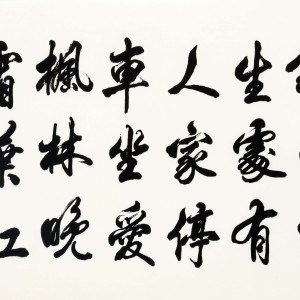 生處有
人家停
車坐愛
楓林晚
霜葉